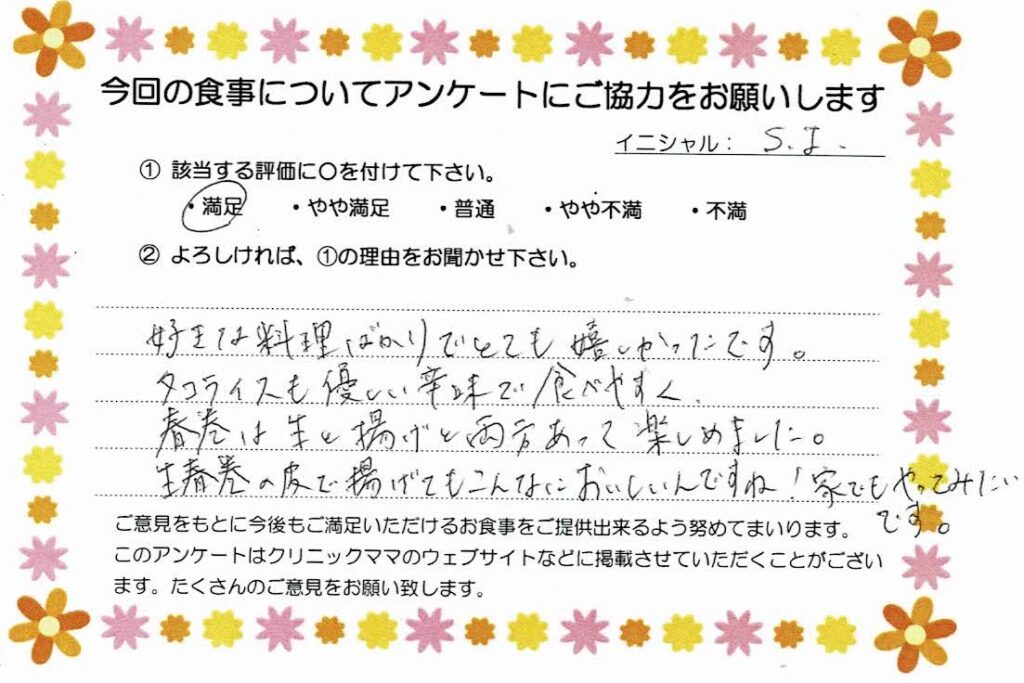 今回の食事についてアンケートにご協力をお願いします
イニシャル： S.I.
① 該当する評価に〇を付けて下さい。
・満足 ・やや満足 ・普通 ・やや不満 ・不満
② よろしければ、①の理由をお聞かせ下さい。
好きな料理ばかりでとても嬉しかったです。
タコライスも優しい辛味で食べやすく、
春巻は生と揚げと両方あって楽しめました。
生春巻の皮で揚げてもこんなにおいしいんですね！家でもやってみたい
です。
ご意見をもとに今後もご満足いただけるお食事をご提供出来るよう努めてまいります。
このアンケートはクリニックママのウェブサイトなどに掲載させていただくことがござい
ます。たくさんのご意見をお願い致します。